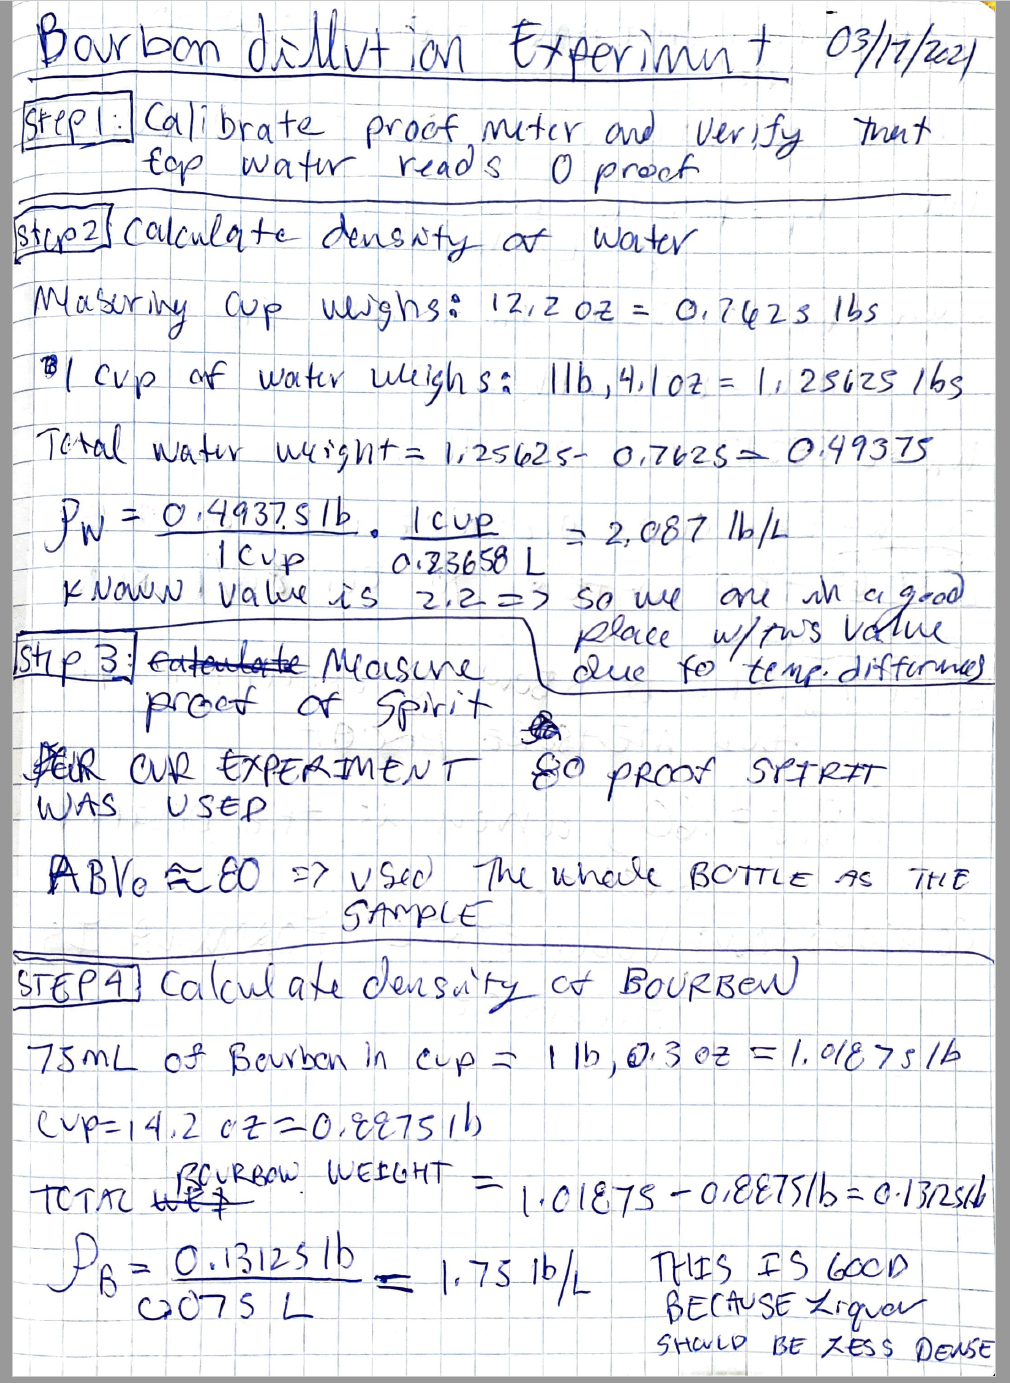 Bourbon dillution Experiment 03/17/2021
Step 1: Calibrate proof meter and verify that
tap water reads 0 proof
Step 2: Calculate density of water
Masuring cup weighs: 12.2 oz = 0.7625 lbs
1 cup of water weighs: 1 lb, 4.1 oz = 1.25625 lbs
Total water weight = 1.25625 - 0.7625 = 0.49375
ρw = 0.49375 lb / 1 cup · 1 cup / 0.23658 L = 2.087 lb/L
Known value is 2.2 => so we are in a good
place w/ this value
due to temp. differences
Step 3: calculate Measure
proof of Spirit
FOR OUR EXPERIMENT 80 PROOF SPIRIT
WAS USED
ABV₀ ≈ 80 => used The whole BOTTLE AS THE
SAMPLE
STEP 4 Calculate density of BOURBON
75 mL of Bourbon in cup = 1 lb, 0.3 oz = 1.01875 lb
Cup = 14.2 oz = 0.8875 lb
TOTAL BOURBON WEIGHT = 1.01875 - 0.8875 lb = 0.13125 lb
ρB = 0.13125 lb / 0.075 L = 1.75 lb/L THIS IS GOOD
BECAUSE Liquor
SHOULD BE LESS DENSE